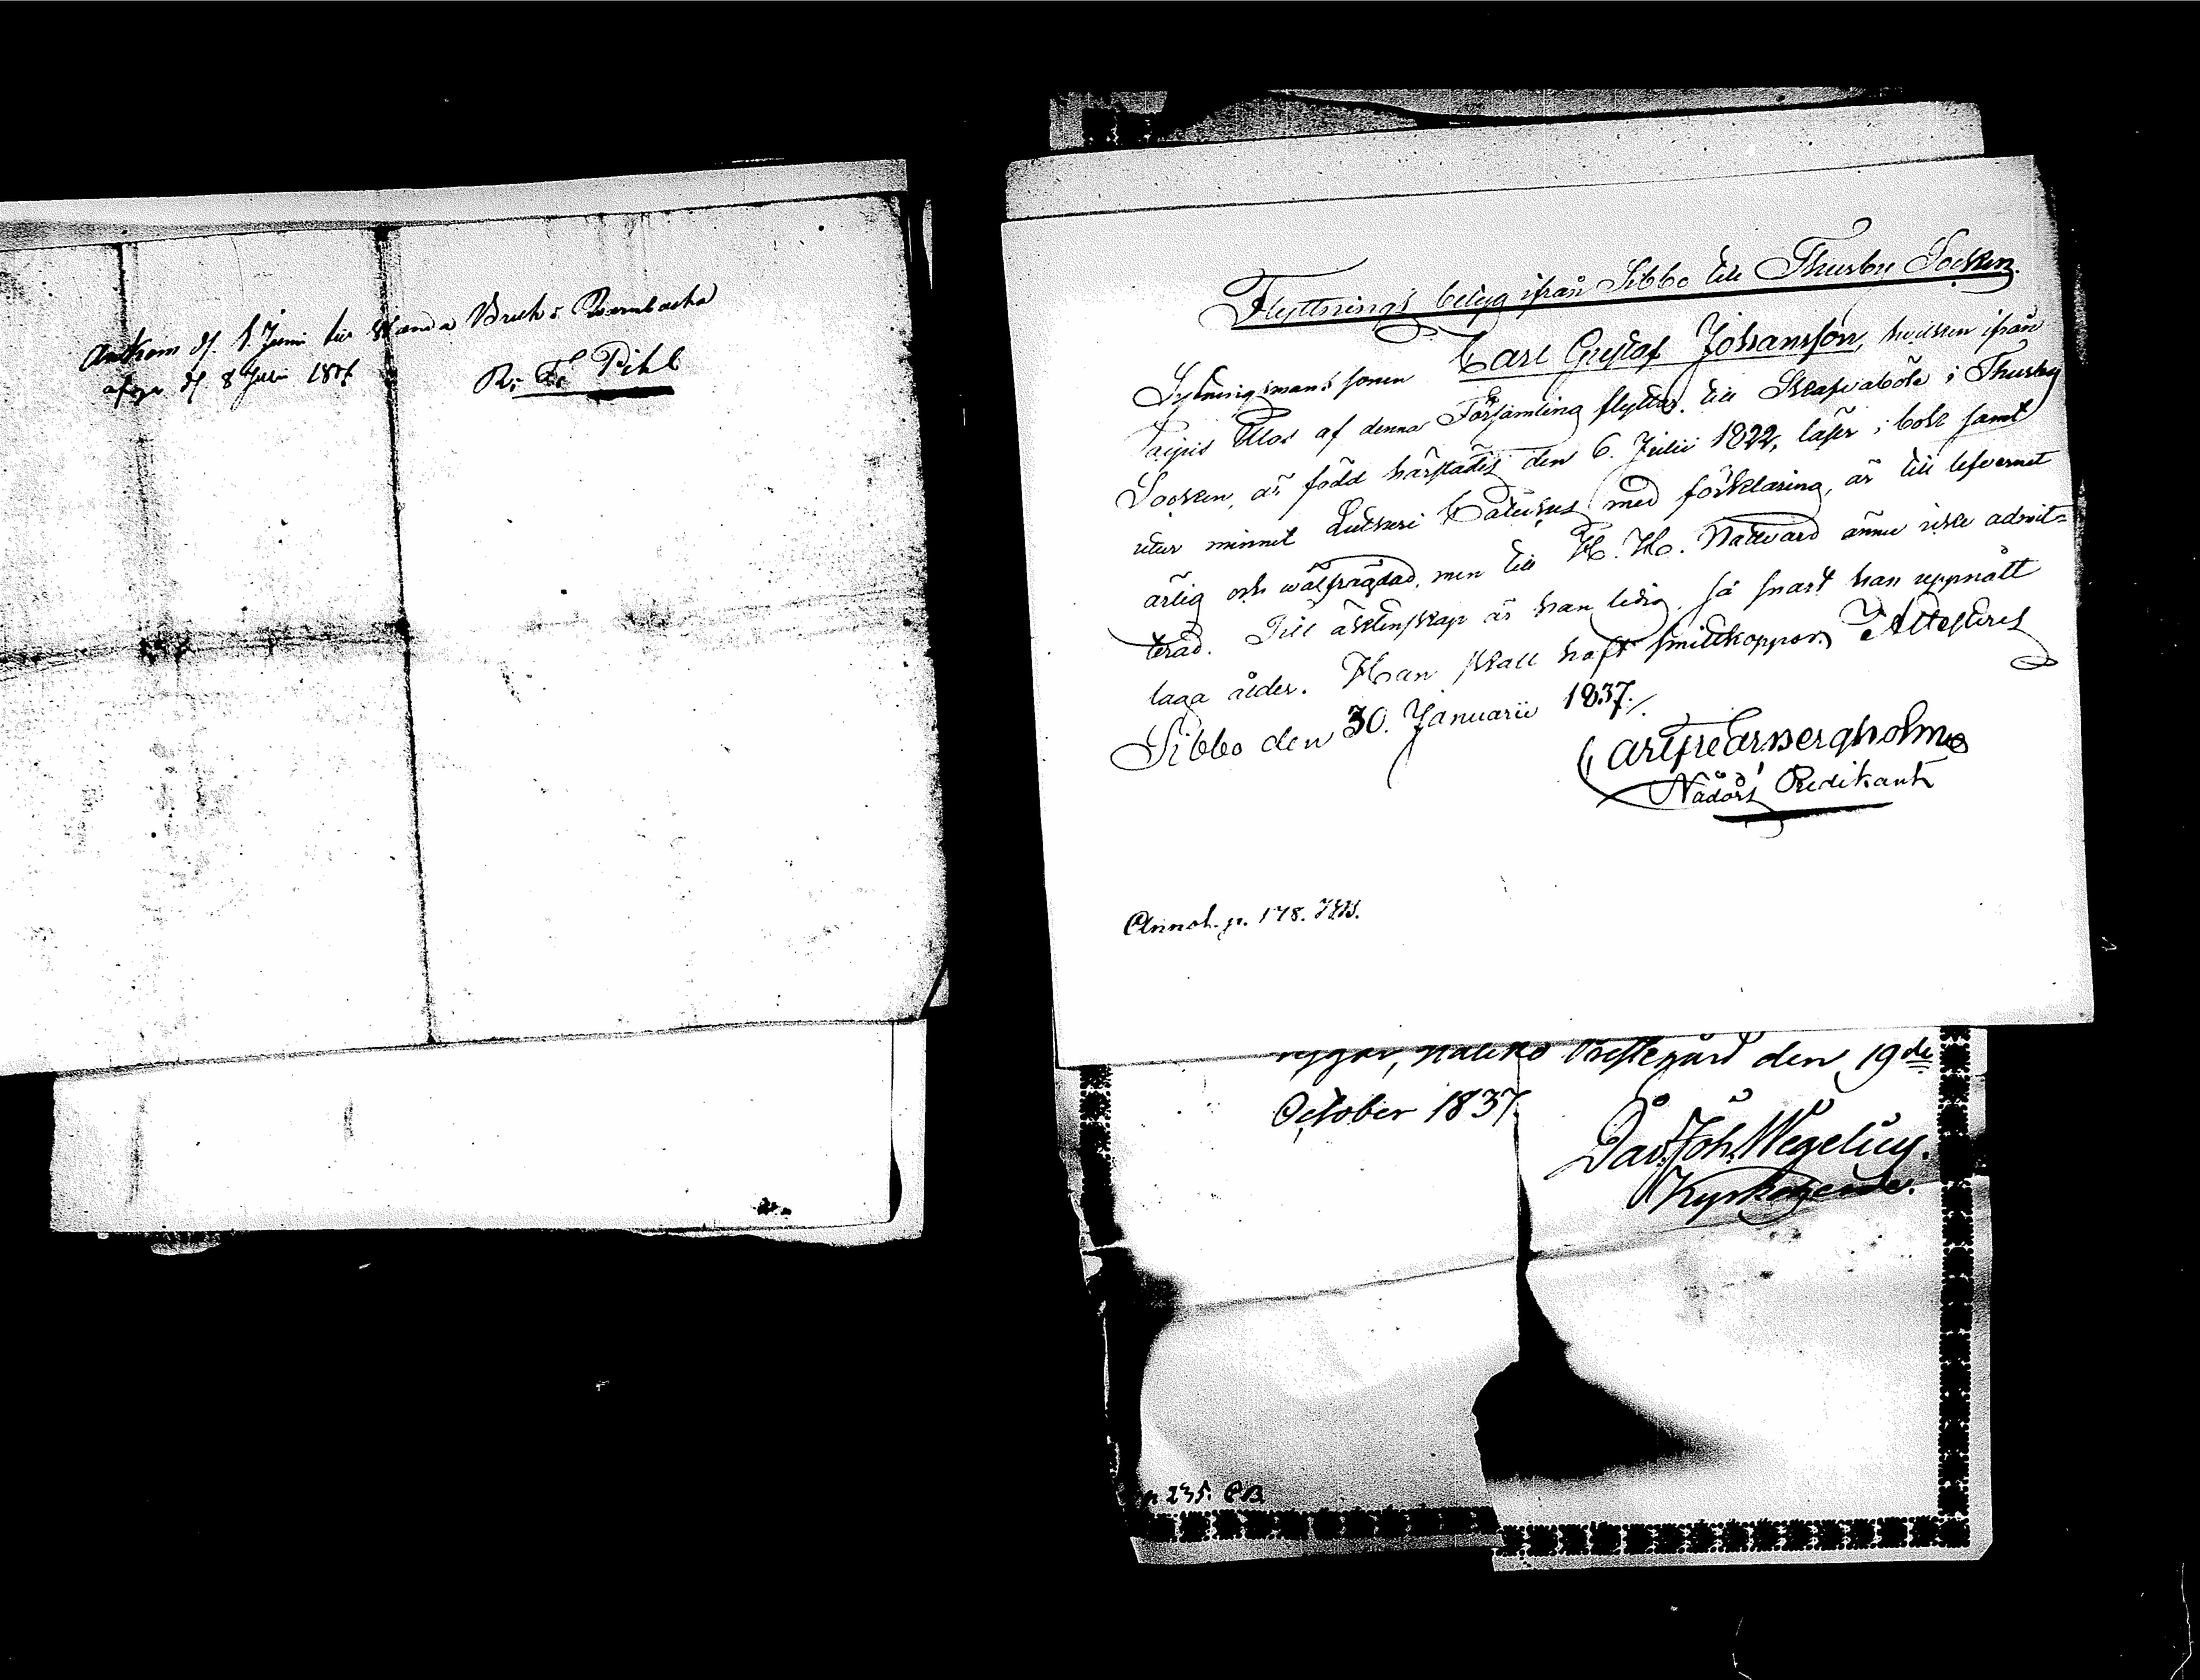 Ankom d. 1. Juni till Wanda Bruk i
afgår d. 8 Juni
R. Fr Pihl
Flyttnings betyg ifrån Sibbo till Thusby Socken.
Sytningsmans sonen Carl Gustaf Johansson, hvilken ifrån
Paipis Klos af denna Församling flyttar till Skafvaböle i Thusby
Socken, är född härstädes den 6. Julii 1822, läser i bok samt
utur minnet Lutheri Cateches med förklaring, är till lefvernet
ärlig och wälfrägdad, men till H. H. Nattvard ännu icke admit=
terad. Till äktenskap är han ledig, så snart han uppnått
laga ålder. Han skall haft smittkoppor. Attesteras
Sibbo den 30. Januarii 1837./.
Carl Fredr Bergholm
Nådårs Predikant
Annot. p. 178.
Prestegård den 19de
October 1837.
Dav. Joh. Wegelius.
Kyrkoherde.
p. 235.